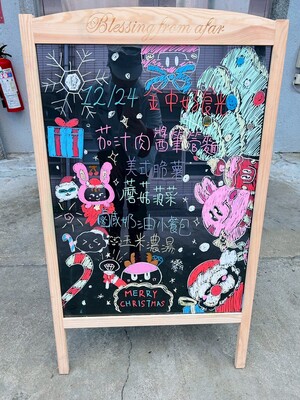 Blessing from afar
12/24 金中好食光
茄汁肉醬筆管麵
美式脆薯
蘑菇菠菜
鹹奶油小餐包
玉米濃湯
MERRY
CHRISTMAS